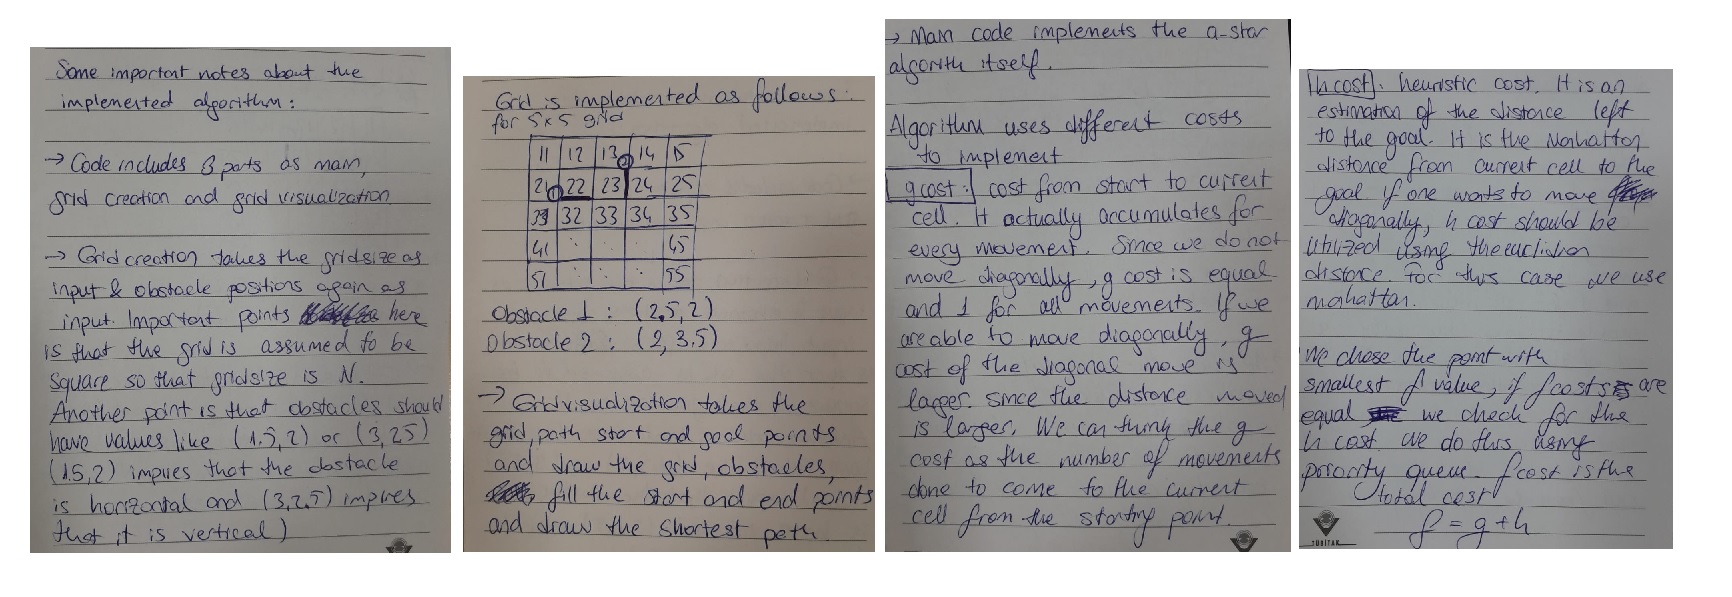 Some important notes about the
implemented algorithm:
→ Code includes 3 parts as main,
grid creation and grid visualization
→ Grid creation takes the gridsize as
input & obstacle positions again as
input. Important points here
is that the grid is assumed to be
square so that gridsize is N.
Another point is that obstacles should
have values like (1.5,2) or (3,2.5)
(1.5,2) impies that the obstacle
is horizontal and (3,2.5) impires
that it is vertical)
Grid is implemented as follows:
for 5x5 grid
11 12 13 14 15
21 22 23 24 25
31 32 33 34 35
41 . . . 45
51 . . . 55
Obstacle 1 : (2.5,2)
Obstacle 2 : (2,3.5)
→ Grid visualization takes the
grid, path start and goal points
and draw the grid, obstacles,
fill the start and end points
and draw the shortest path.
→ Main code implements the a-star
algorith itself.
Algorithm uses different costs
to implement
g cost: cost from start to current
cell. It actually accumulates for
every movement. Since we do not
move diagonally, g cost is equal
and 1 for all movements. If we
are able to move diagonally, g
cost of the diagonal move is
larger since the distance moved
is larger. We can think the g
cost as the number of movements
done to come to the current
cell from the starting point.
h cost: heuristic cost. It is an
estimation of the distance left
to the goal. It is the Manhattan
distance from current cell to the
goal if one wants to move
diagonally, h cost should be
utilized using the euclidian
distance. For this case we use
manhattan.
We chose the point with
smallest f value, if f costs are
equal we check for the
h cost. we do this using
priority queue. f cost is the
total cost
f = g + h
TÜBİTAK